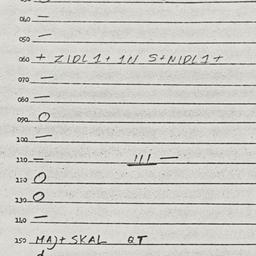 040 —
050 —
060 + ZIDL1+ 1N S+NIDL1+
070 —
080 —
090 O
100 —
110 — III —
120 O
130 O
140 —
150 MAJ+ SKAL QT